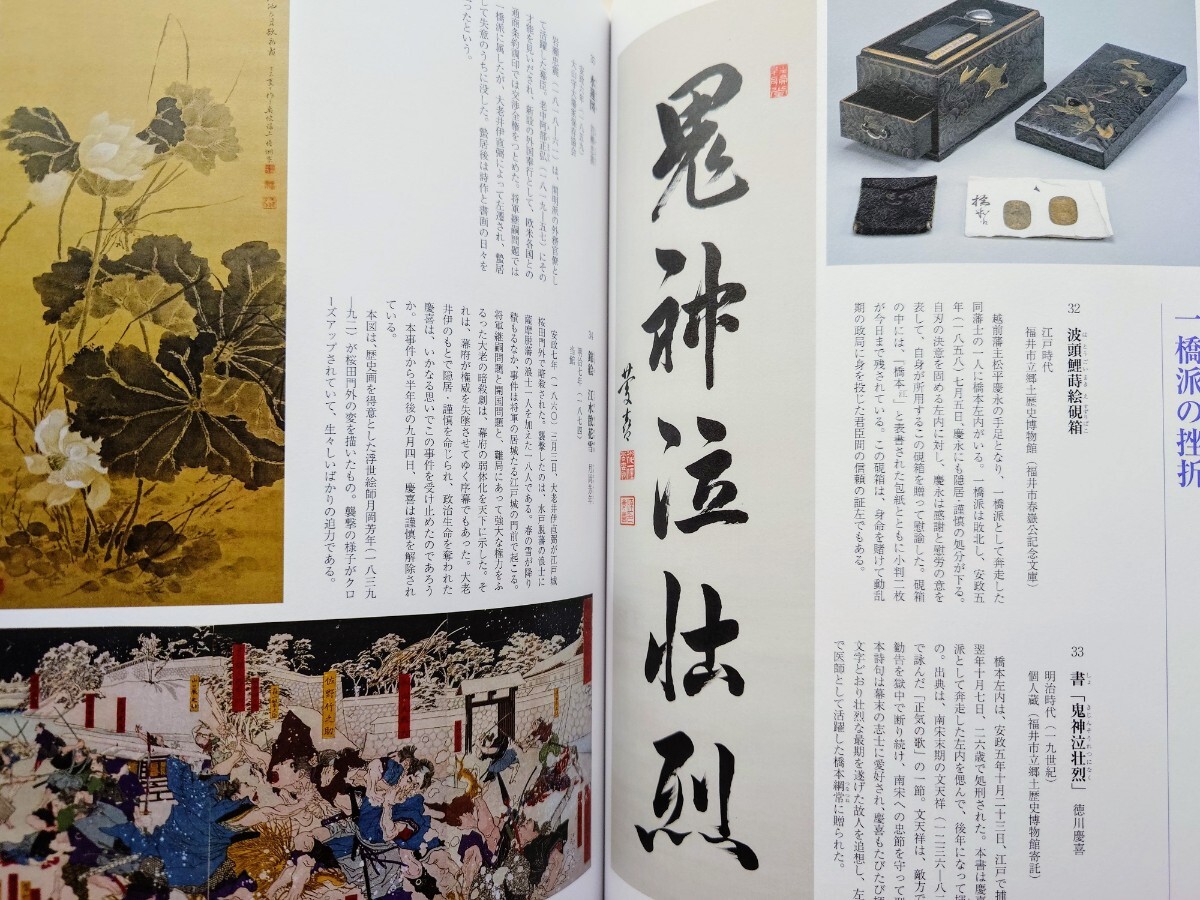 一橋派の挫折
32 波頭鯉蒔絵硯箱
はとうこいまきえすずりばこ
江戸時代
福井市立郷土歴史博物館(福井市春嶽公記念文庫)
越前藩主松平慶永の手足となり、一橋派として奔走した
同藩士の一人に橋本左内がいる。一橋派は敗北し、安政五
年(一八五八)七月五日、慶永にも隠居・謹慎の処分が下る。
自刃の決意を固める左内に対し、慶永は感謝と慰労の意を
表して、自身が所用するこの硯箱を贈って慰諭した。硯箱
の中には、「橋本 」と表書された包紙とともに小判二枚
が今日まで残されている。この硯箱は、身命を賭けて動乱
期の政局に身を投じた君臣間の信頼の証左でもある。
33 書「鬼神泣壮烈」 徳川慶喜
しょ きじんそうれつになく
明治時代(一九世紀)
個人蔵(福井市立郷土歴史博物館寄託)
橋本左内は、安政五年十月二十三日、江戸で捕
翌年十月七日、二六歳で処刑された。本書は慶
派として奔走した左内を偲んで、後年になって揮
の。出典は、南宋末期の文天祥(一二三六―八
で詠んだ「正気の歌」の一節。文天祥は、敵方で
勧告を獄中で断り続け、南宋への忠節を守って
本詩句は幕末の志士に愛好され、慶喜もたびたび揮
文字どおり壮烈な最期を遂げた故人を追想し、左
で医師として活躍した橋本綱常に贈られた。
つなつね
鬼神泣壮烈
岩瀬忠震(一八一八―六一)は、開明派の外務官僚とし
て活躍した幕臣。老中阿部正弘(一八一九―五七)にその
才能を見いだされ、新設の外国奉行として、欧米各国との
通商条約調印では交渉全権をつとめた。将軍継嗣問題では
一橋派に属したが、大老井伊直弼によって左遷され、蟄居
して失意のうちに没した。蟄居後は詩作と書画の日々を
ったという。
34 錦絵 江水散花雪
明治七年(一八七四)
安政七年(一八六〇)三月三日、大老井伊直弼が江戸城
桜田門外で暗殺された。襲撃したのは、水戸脱藩の浪士に
薩摩脱藩の浪士一人を加えた一八人である。春の雪が降り
積もるなか、事件は将軍の居城たる江戸城の門前で起こる。
将軍継嗣問題と開国問題と、難局にあって強大な権力をふ
るった大老の暗殺劇は、幕府の弱体化を天下に示した。そ
れは、幕府が権威を失墜させてゆく序幕でもあった。大老
井伊のもとで隠居・謹慎を命じられ、政治生命を奪われた
慶喜は、いかなる思いでこの事件を受け止めたのであろう
か。本事件から半年後の九月四日、慶喜は謹慎を解除され
ている。
本図は、歴史画を得意とした浮世絵師月岡芳年(一八三九
―九二)が桜田門外の変を描いたもの。襲撃の様子がクロ
ーズアップされていて、生々しいばかりの迫力である。
佐野竹之助